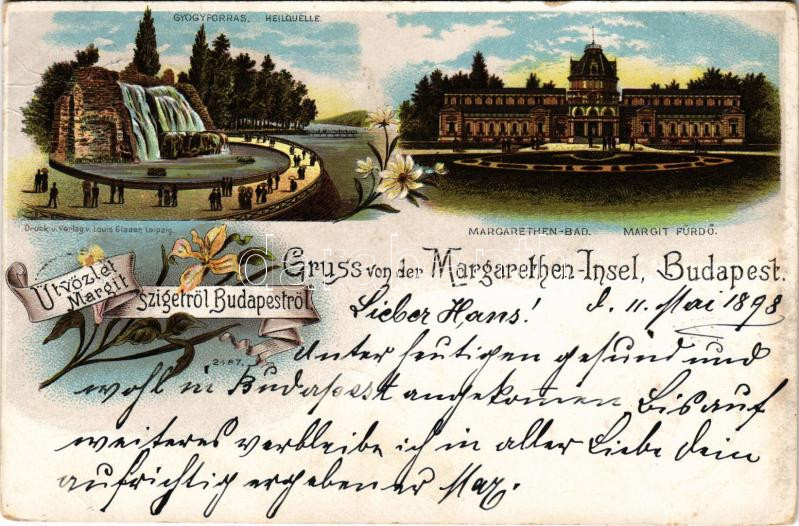 GYÓGYFORRÁS. HEILQUELLE.
Druck u. Verlag v. Louis Glaser, Leipzig.
MARGARETHEN-BAD. MARGIT FÜRDŐ.
Gruss von der Margarethen-Insel, Budapest.
Útvözlet
Margit
Szigetről Budapestről
2487.
d. 11. Mai 1898
Lieber Hans!
Unter heutigen gesund und
wohl in Budapest angekommen Bis auf
weiteres verbleibe ich in aller Liebe dein
aufrichtig ergebener Max.